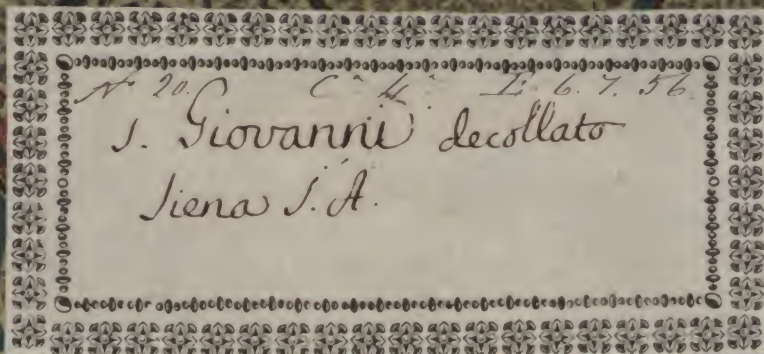 N° 20. C° 4° L. 6. 7. 56.
S. Giovanni decollato
Siena S. A.